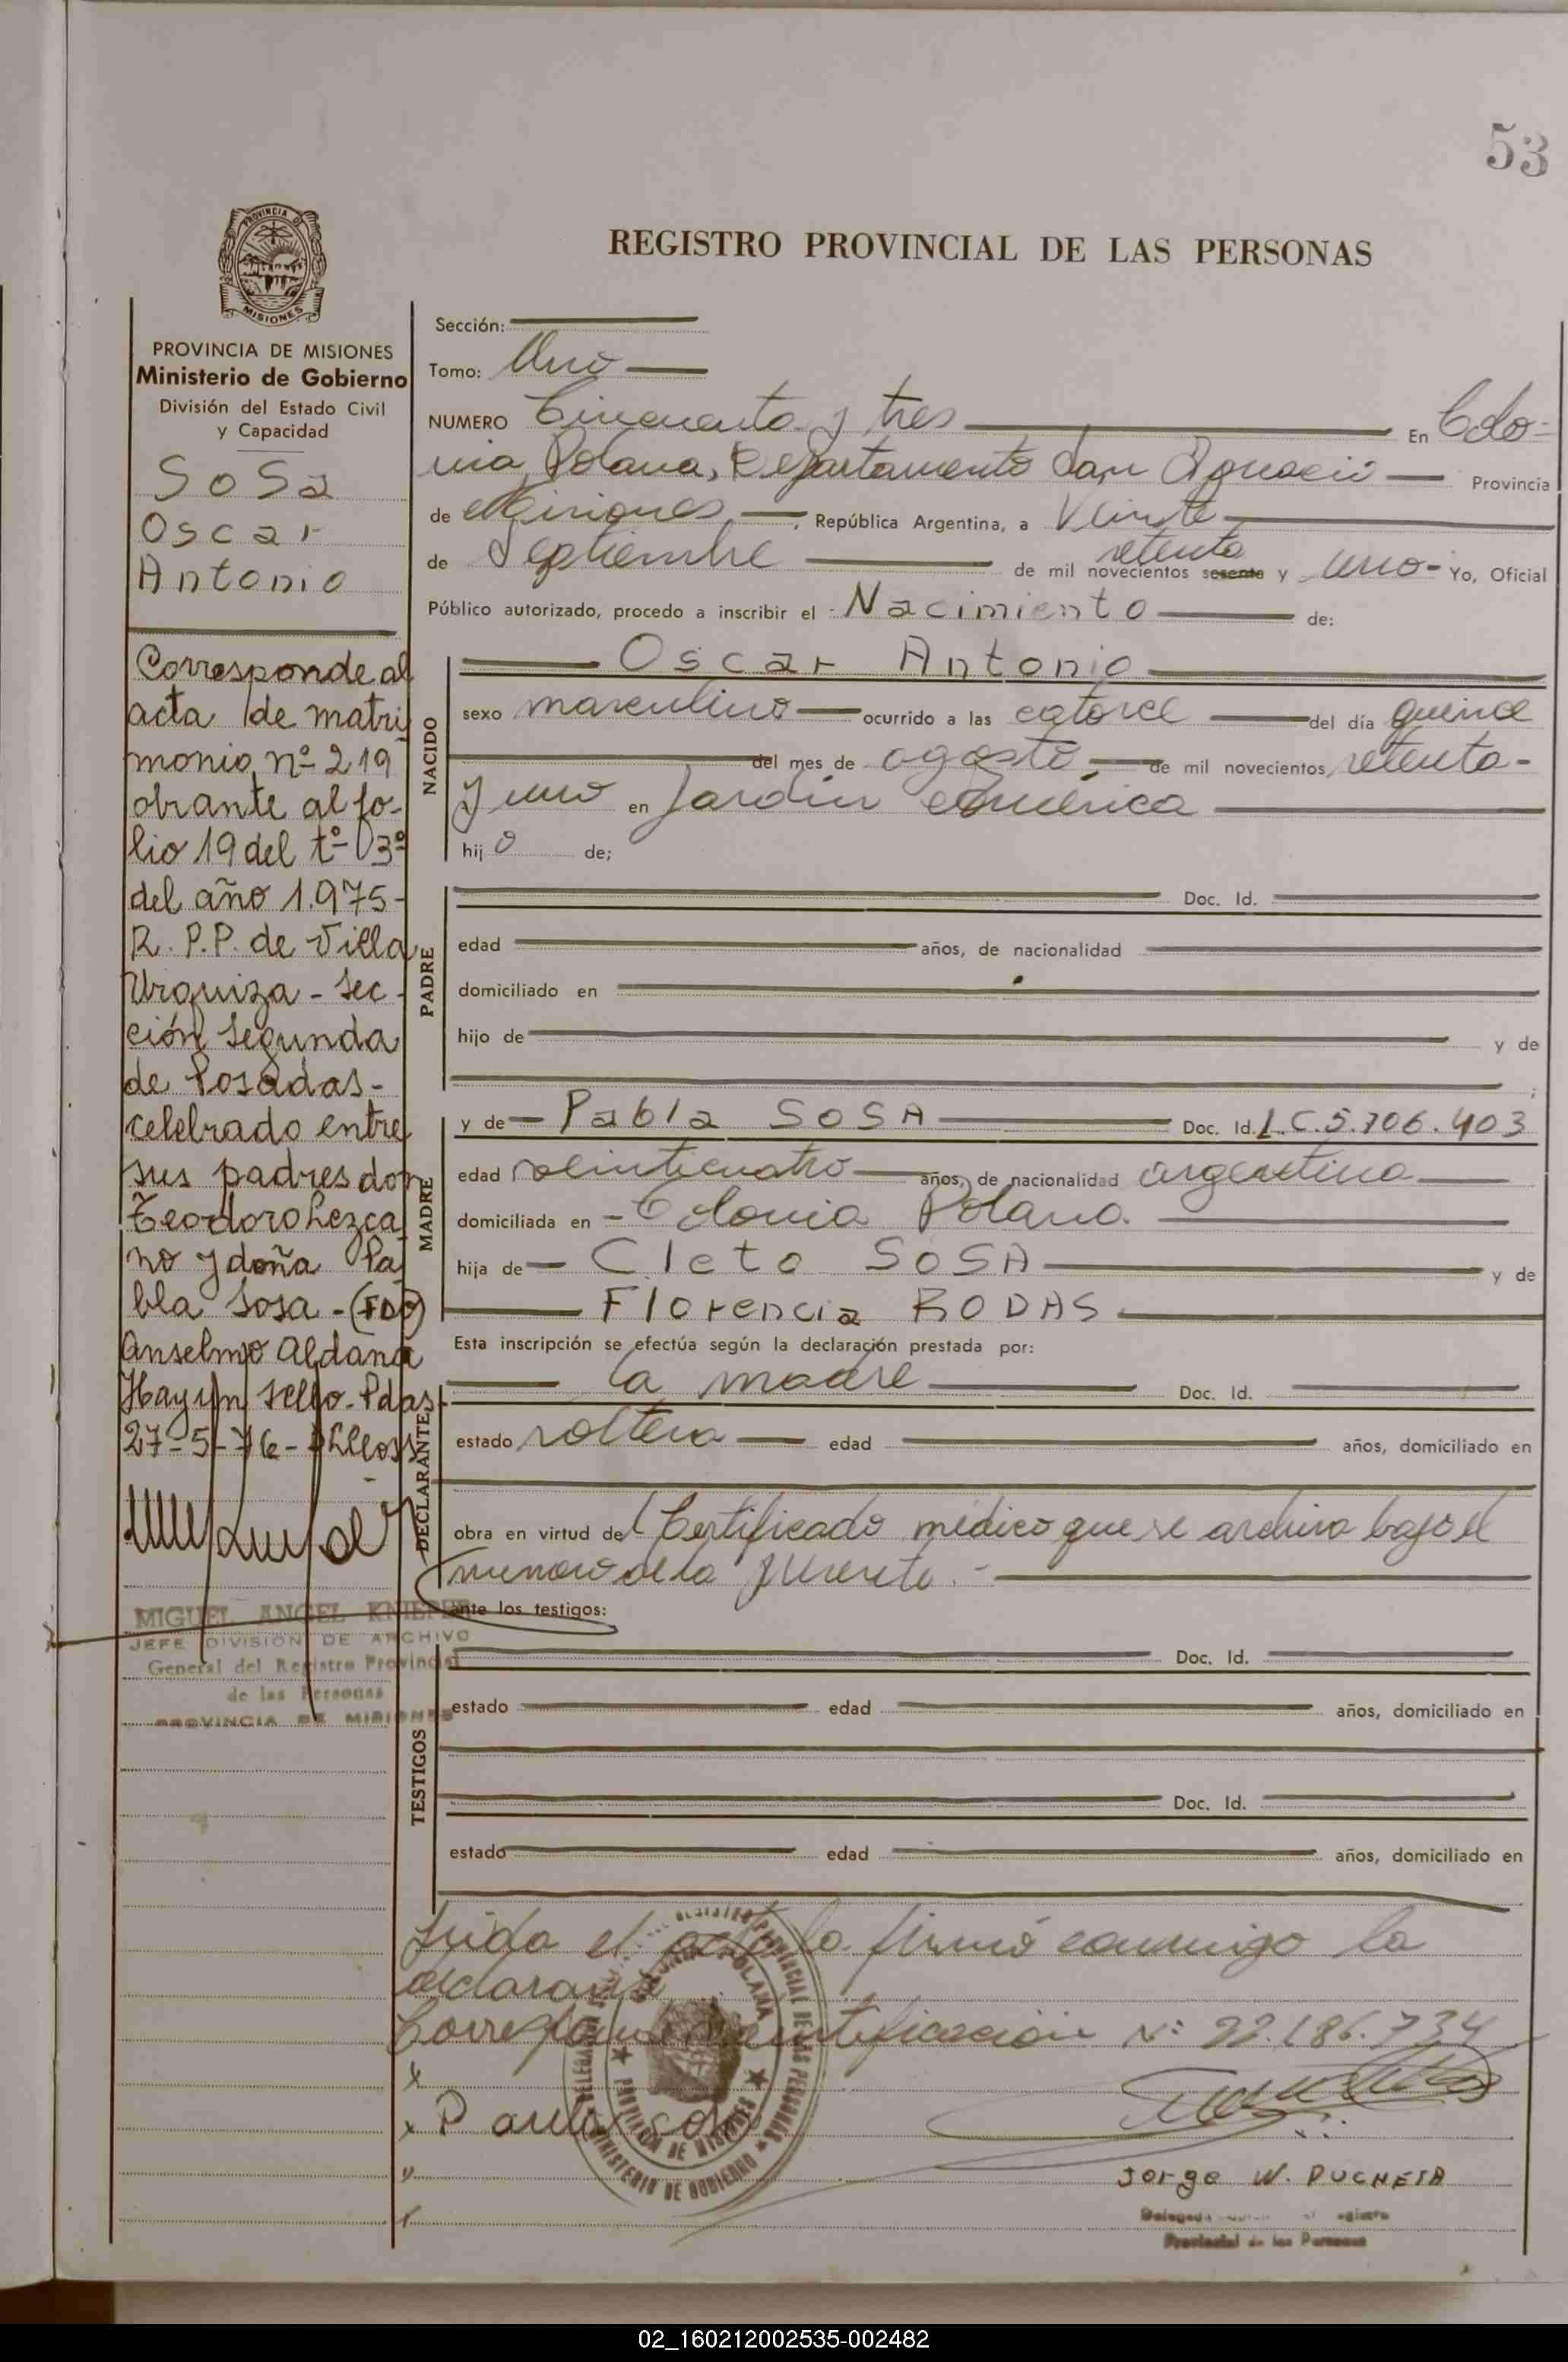 53
PROVINCIA DE
MISIONES
REGISTRO PROVINCIAL DE LAS PERSONAS
PROVINCIA DE MISIONES
Ministerio de Gobierno
División del Estado Civil
y Capacidad
SoSa
Oscar
Antonio
Corresponde al
acta de matri
monio nº 219
obrante al fo-
lio 19 del tº 3º
del año 1.975-
R. P.P. de Villa
Urquiza - Sec-
ción Segunda
de Posadas-
celebrado entre
sus padres don
Teodoro Lezca
no y doña Pa
bla Sosa - (FDO)
Anselmo Aldana
Hay un sello - Pdas
27-5-76-
MIGUEL ANGEL
JEFE DIVISIÓN DE ARCHIVO
General del Registro Provincial
de las Personas
PROVINCIA DE MISIONES
Sección:
Tomo: Uno
NUMERO Cincuenta y tres En Colo=
nia Polana, Departamento San Ignacio Provincia
de Misiones, República Argentina, a Veinte
de Septiembre de mil novecientos sesenta setenta y uno- Yo, Oficial
Público autorizado, procedo a inscribir el Nacimiento de:
NACIDO
Oscar Antonio
sexo masculino ocurrido a las catorce del día quince
del mes de agosto de mil novecientos setenta-
y uno en Jardín América
hijo de;
PADRE
Doc. Id.
edad años, de nacionalidad
domiciliado en
hijo de y de
;
MADRE
y de Pabla SOSA Doc. Id. L.C.5.706.403
edad veinticuatro años, de nacionalidad argentina
domiciliada en - Colonia Polana.
hija de Cleto SOSA y de
Florencia RODAS
Esta inscripción se efectúa según la declaración prestada por:
DECLARANTE
la madre Doc. Id.
estado soltera edad años, domiciliado en
obra en virtud del Certificado médico que se archiva bajo el
numero de la presente.-
ante los testigos:
TESTIGOS
Doc. Id.
estado edad años, domiciliado en
Doc. Id.
estado edad años, domiciliado en
Leida el acta la firmó conmigo la
declarante
N° 22.186.734
REGISTRO PROVINCIAL DE LAS PERSONAS
POLANA
PROVINCIA DE MISIONES
MINISTERIO DE GOBIERNO
Jorge W. DUCHETA
Provincial de las Personas
02_160212002535-002482